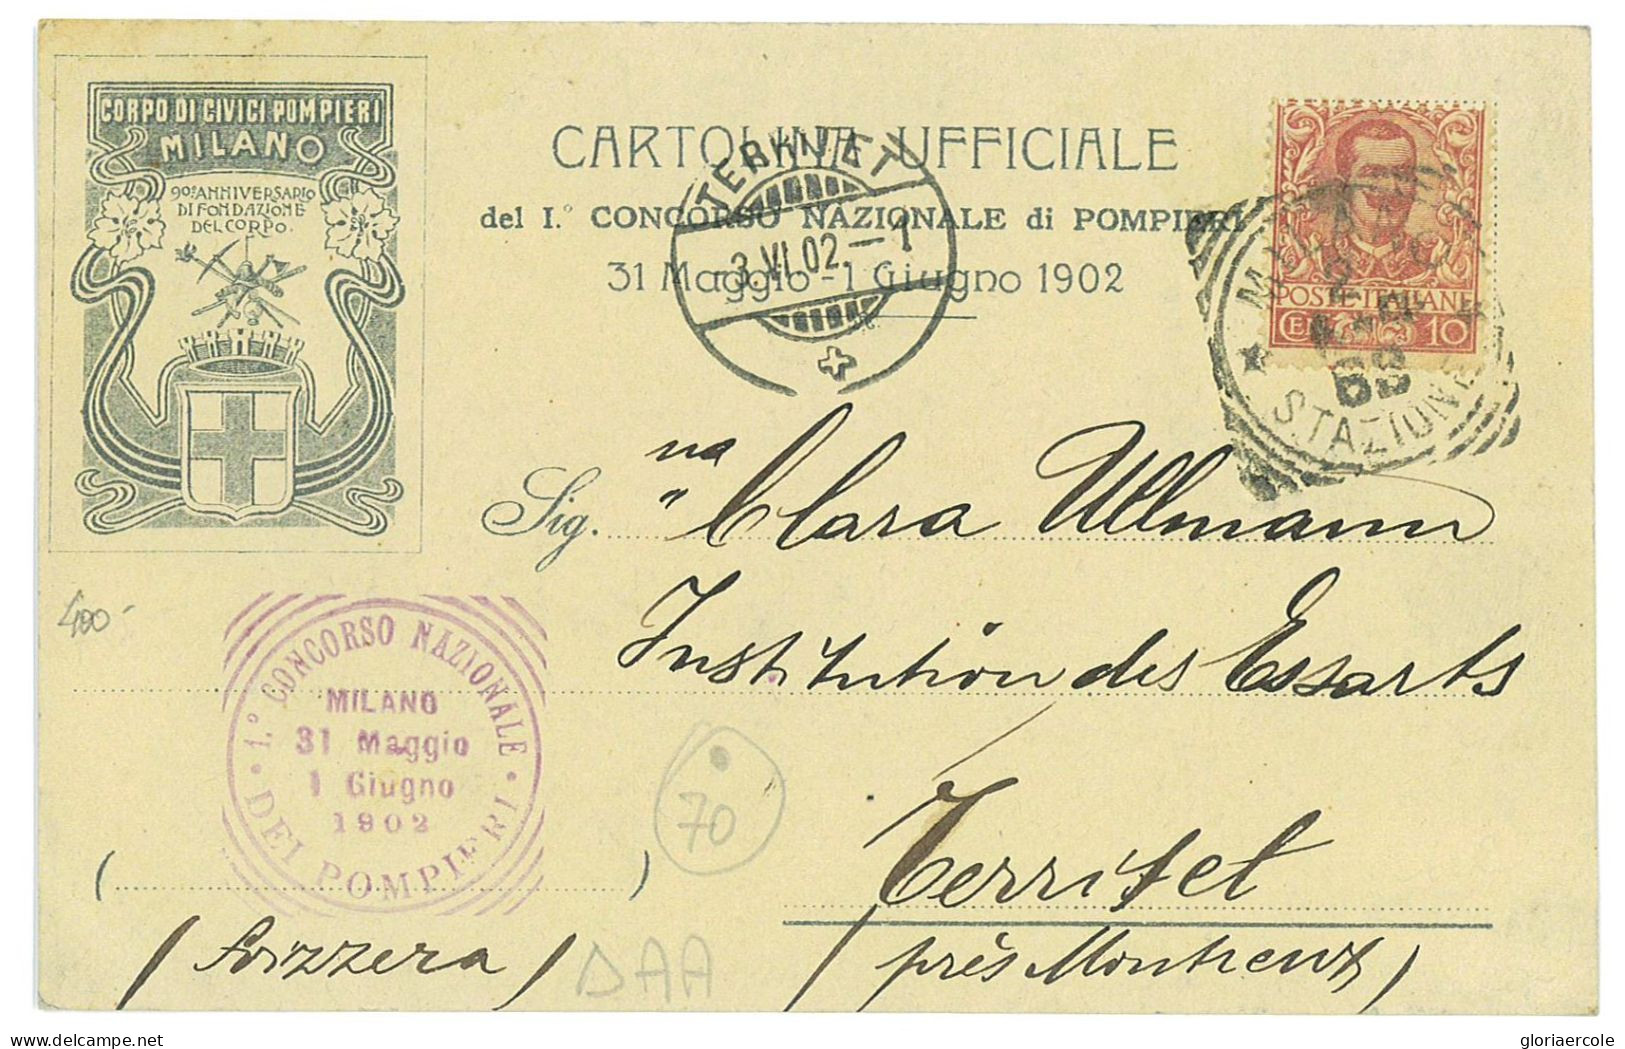 CORPO DI CIVICI POMPIERI
MILANO
90º ANNIVERSARIO
DI FONDAZIONE
DEL CORPO.
CARTOLINA UFFICIALE
del I.º CONCORSO NAZIONALE di POMPIERI
31 Maggio - 1 Giugno 1902
TERRITET
-3.VI.02.-1
POSTE ITALIANE
CE 10
MILANO
STAZIONE
Sig.na Clara Ullmann
Institution des Essarts
Territet
(près Montreux)
(Svizzera)
400-
1.º CONCORSO NAZIONALE
MILANO
31 Maggio
1 Giugno
1902
DEI POMPIERI
70
DAA
delcampe.net
gloriaercole